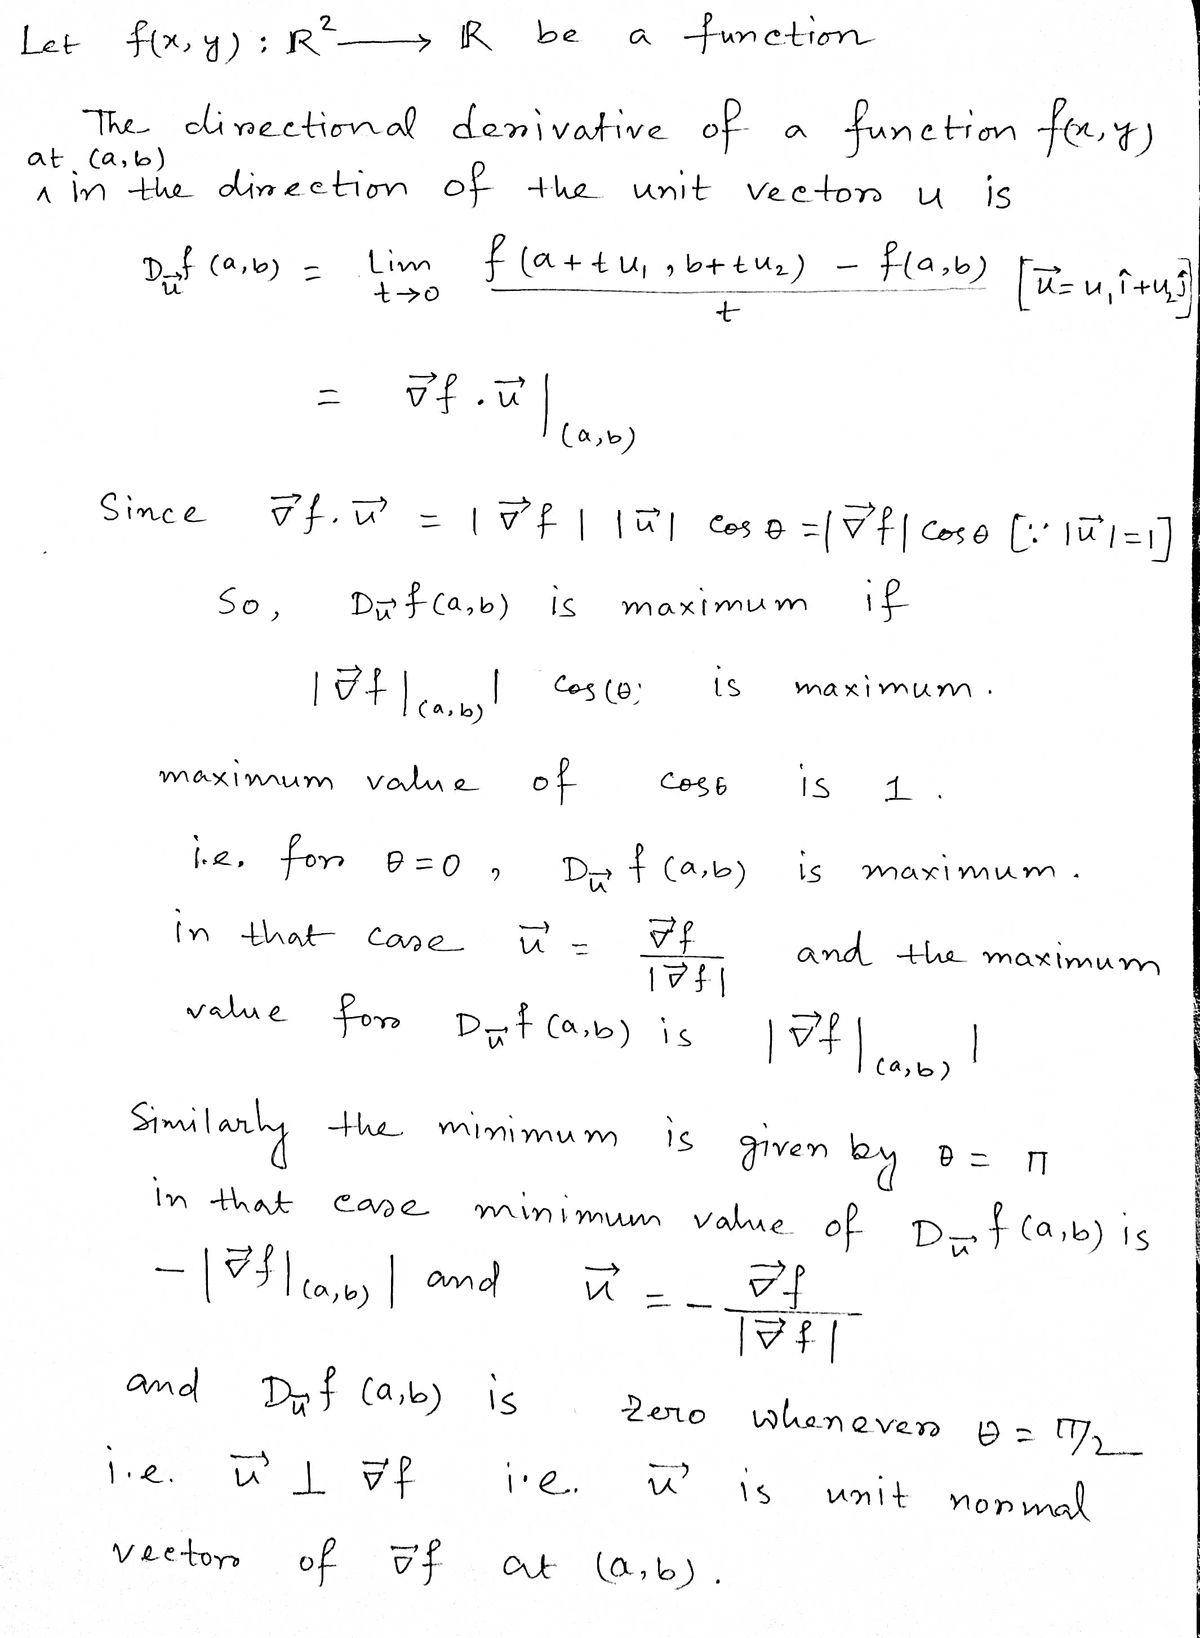 Let f(x, y) : ℝ² ⟶ ℝ be a function
The directional derivative of a function f(x, y)
at (a,b)
∧ in the direction of the unit vector u is
D_u⃗ f (a,b) = Lim_{t→0} (f (a+tu₁ , b+tu₂) − f(a,b)) / t [u⃗ = u₁î+u₂ĵ]
= ∇⃗f . u⃗ |_(a,b)
Since ∇⃗f. u⃗ = |∇⃗f| |u⃗| cos θ = |∇⃗f| cos θ [∵ |u⃗|=1]
So, D_u⃗ f(a,b) is maximum if
|∇⃗f|_(a,b)| cos(θ) is maximum.
maximum value of cosθ is 1.
i.e. for θ=0, D_u⃗ f (a,b) is maximum.
in that case u⃗ = ∇⃗f / |∇⃗f| and the maximum
value for D_u⃗ f (a,b) is |∇⃗f|_(a,b)|
Similarly the minimum is given by θ = π
in that case minimum value of D_u⃗ f (a,b) is
−|∇⃗f|_(a,b)| and u⃗ = − ∇⃗f / |∇⃗f|
and D_u⃗ f (a,b) is zero whenever θ = π/2
i.e. u⃗ ⊥ ∇⃗f i.e. u⃗ is unit normal
vector of ∇⃗f at (a,b).